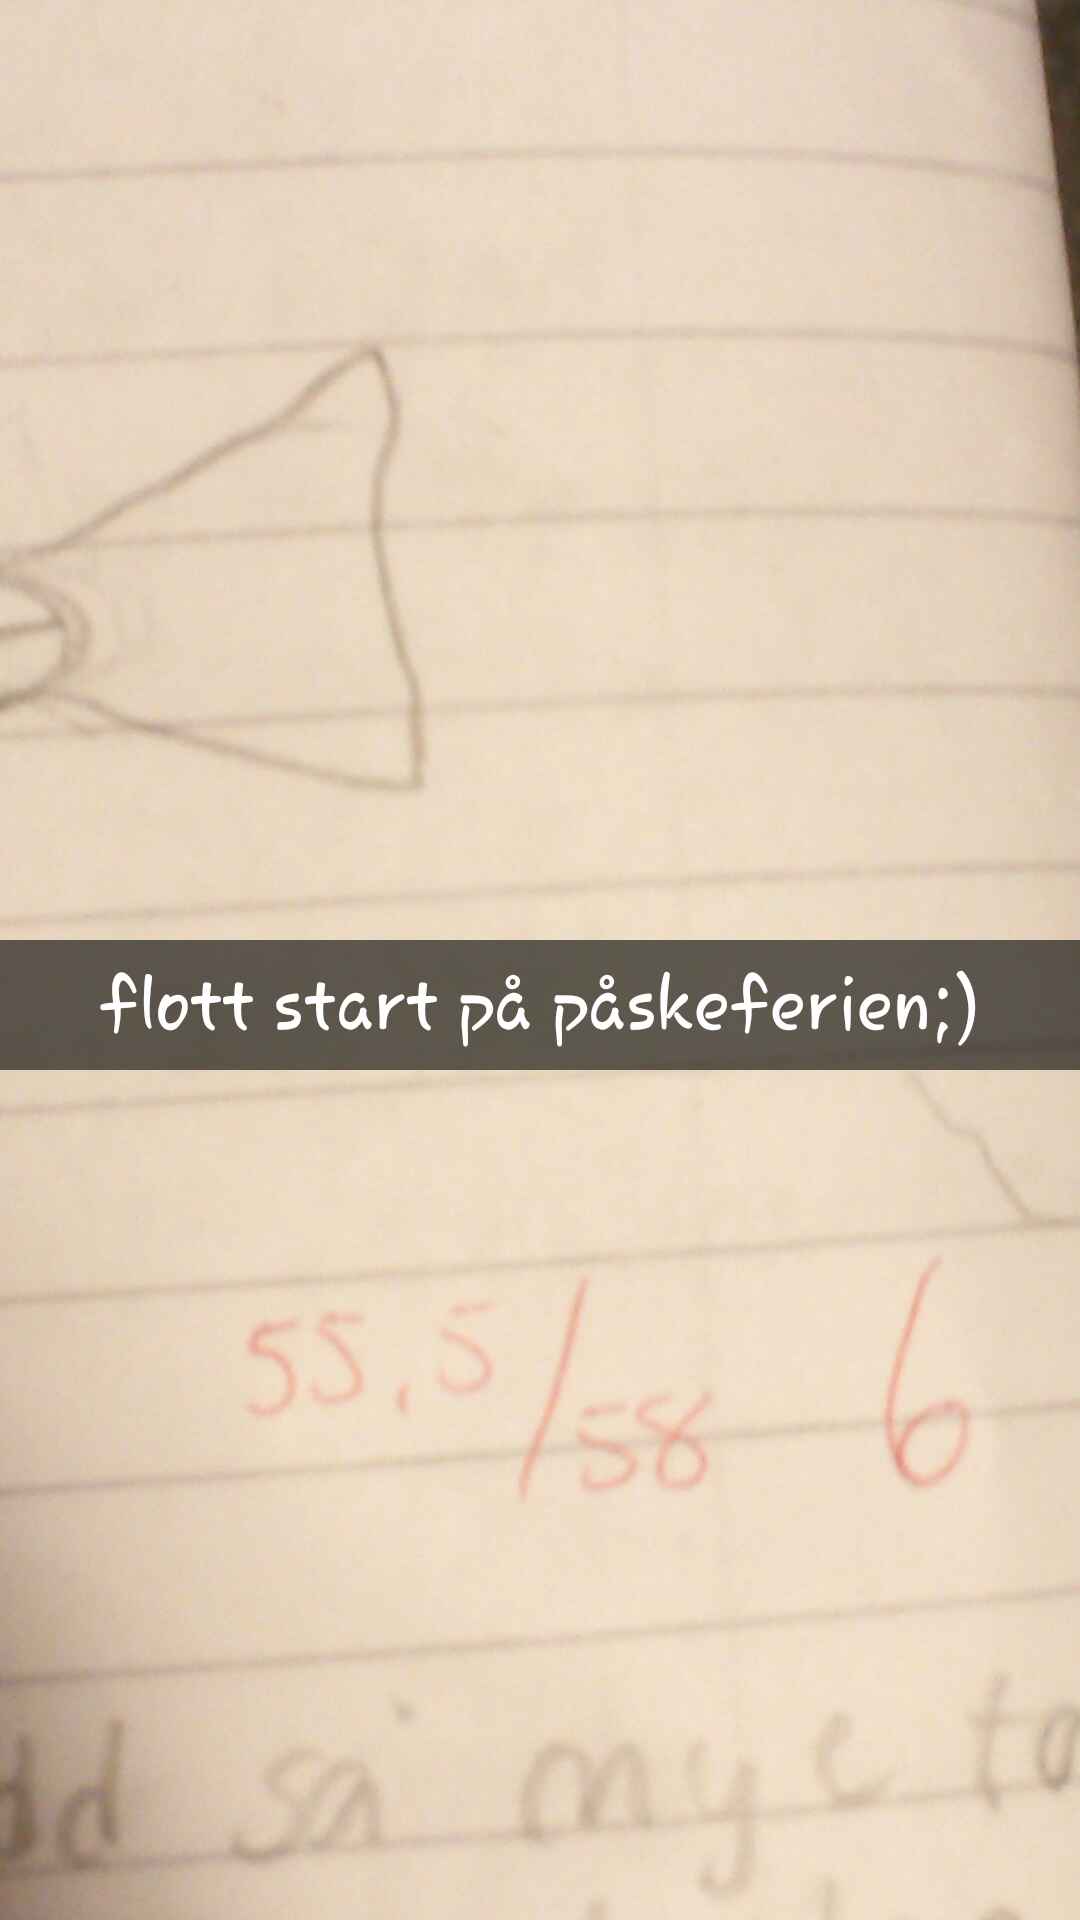 flott start på påskeferien;)
55,5/58 6
så mye